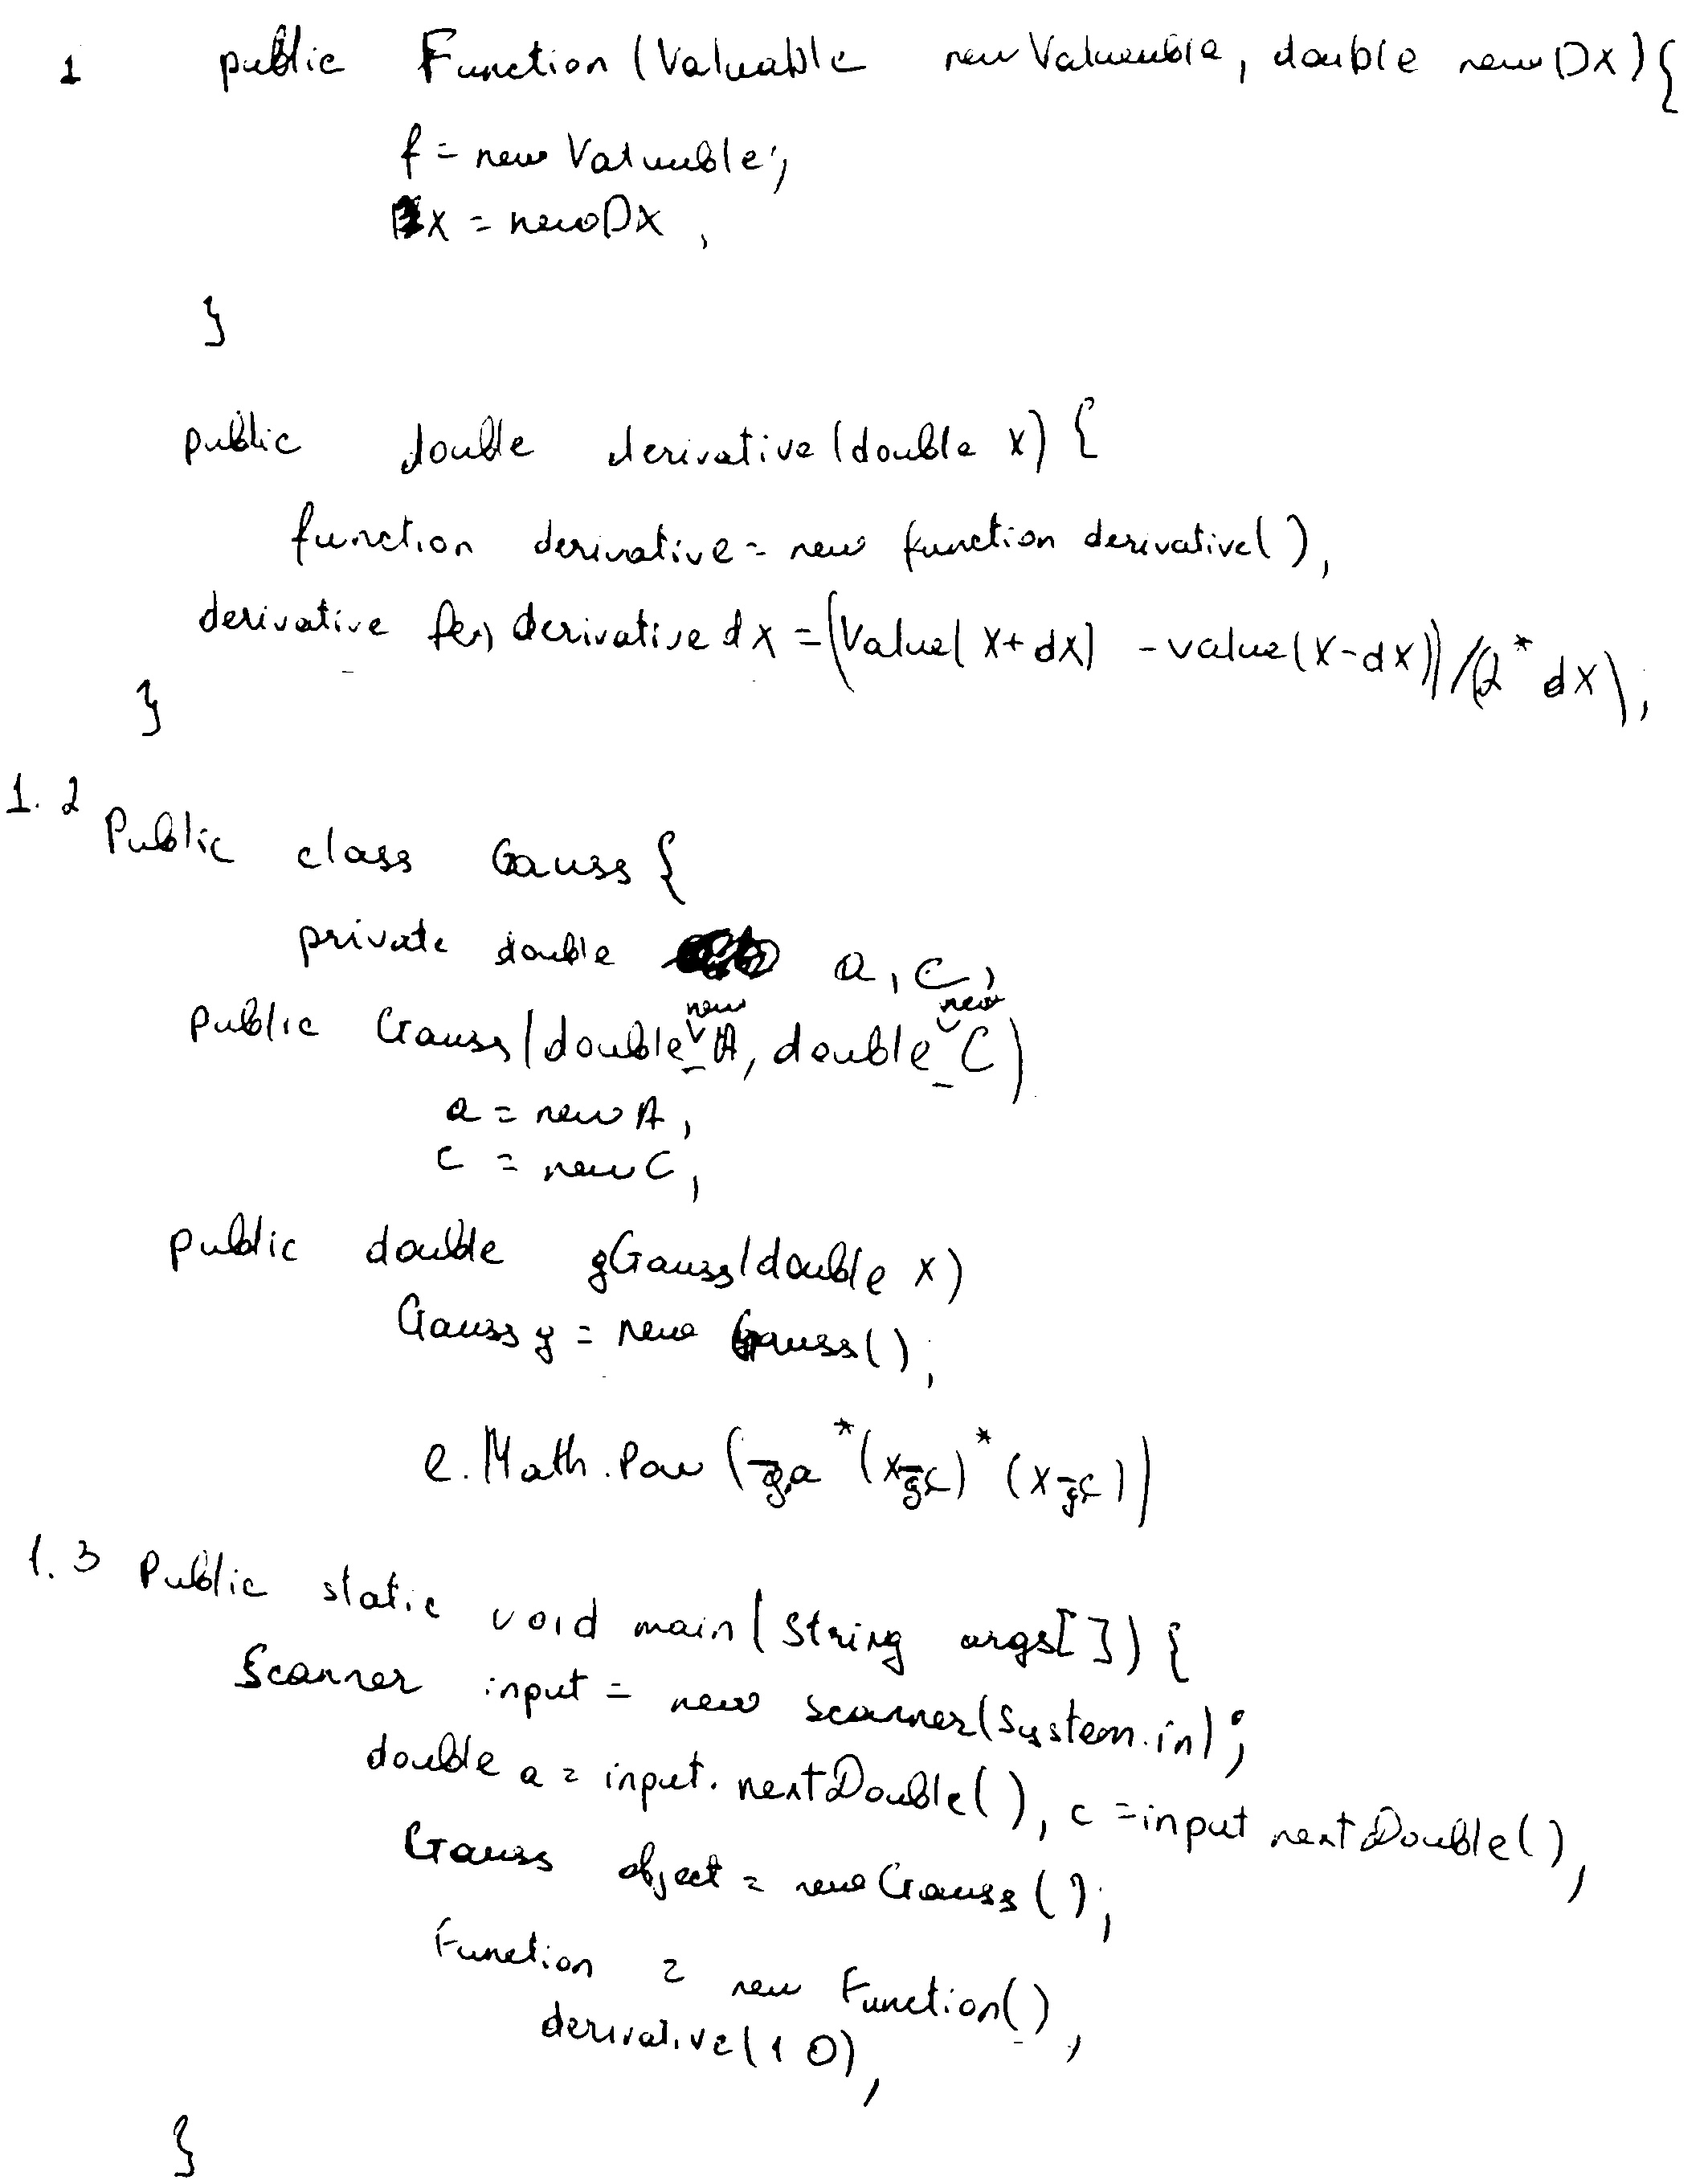 1 public Function (Valuable newValuable, double newDX) {
f = newValuable;
X = newDX,
}
public double derivative (double x) {
function derivative = new function derivative(),
derivative f(x) derivative dx = (Value(X+dX) - value(X-dX))/(2*dX),
}
1.2
Public class Gauss {
private double a, c,
new new
Public Gauss(double_A, double_C)
a = newA,
c = newC,
public double gGauss(double x)
Gauss g = new Gauss();
e.Math.Pow (-g.a*(x-g.c)*(x-g.c))
1.3 Public static void main(String args[]) {
Scanner input = new scanner(System.in);
double a = input.nextDouble(), c = input nextDouble(),
Gauss object = newGauss();
Function = new Function(),
derivative(1 0),
}